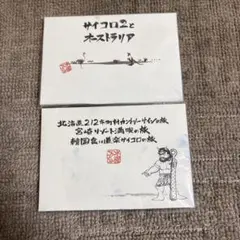 サイコロ2と
オーストラリア
北海道212市町村カントリーサインの旅
宮崎リゾート満喫の旅
韓国食い道楽サイコロの旅